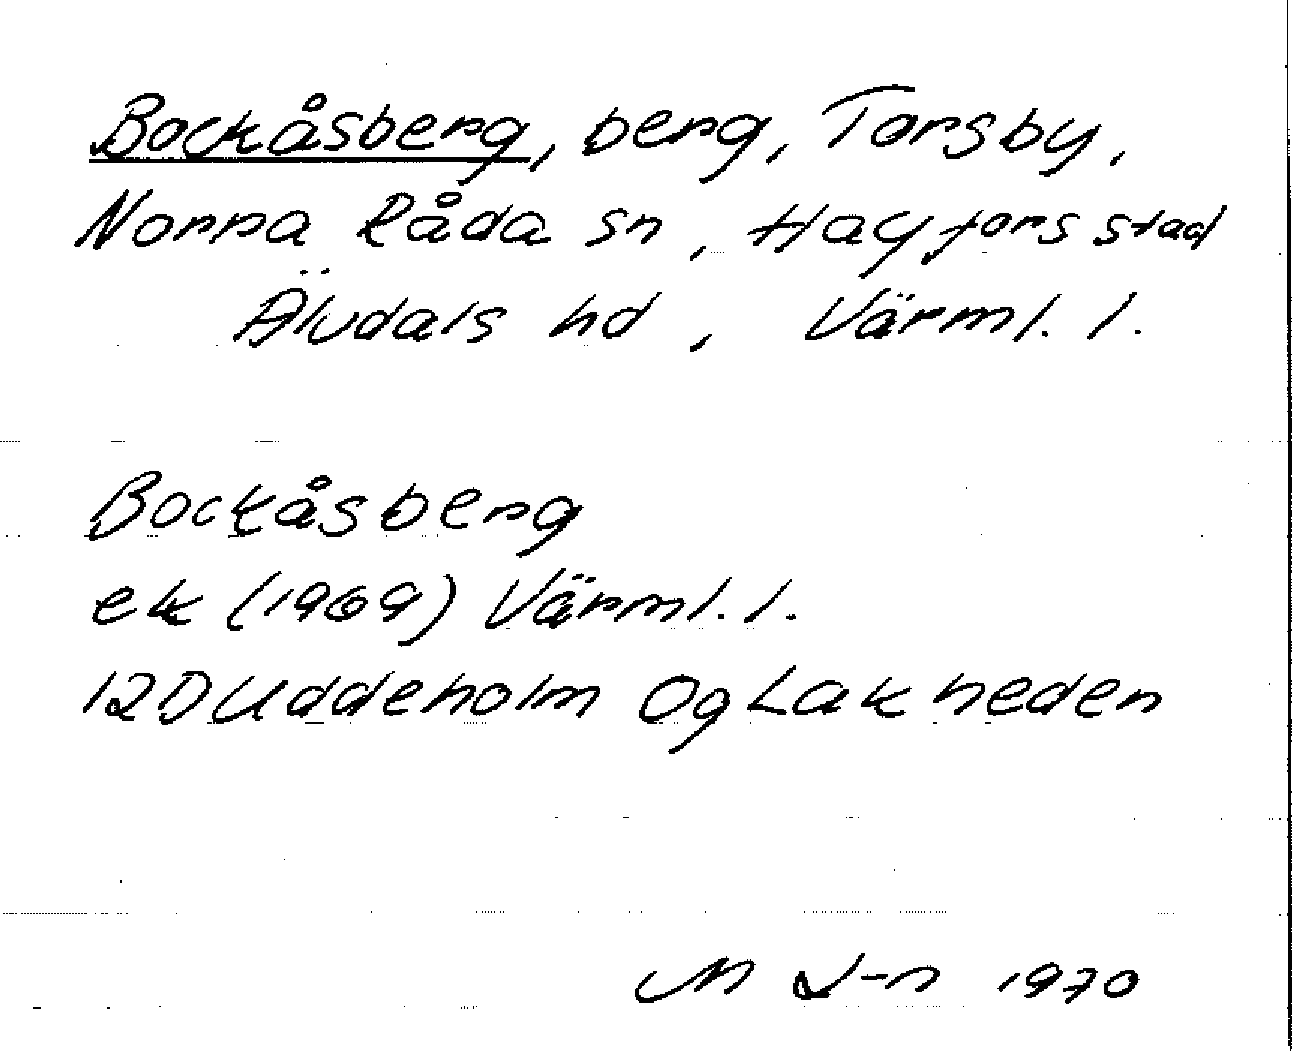 Bockåsberg, berg, Torsby,
Norra Råda sn, Hagfors stad
Älvdals hd, Värml. l.
Bockåsberg
ek (1969) Värml. l.
12D Uddeholm 0g Lakheden
1970